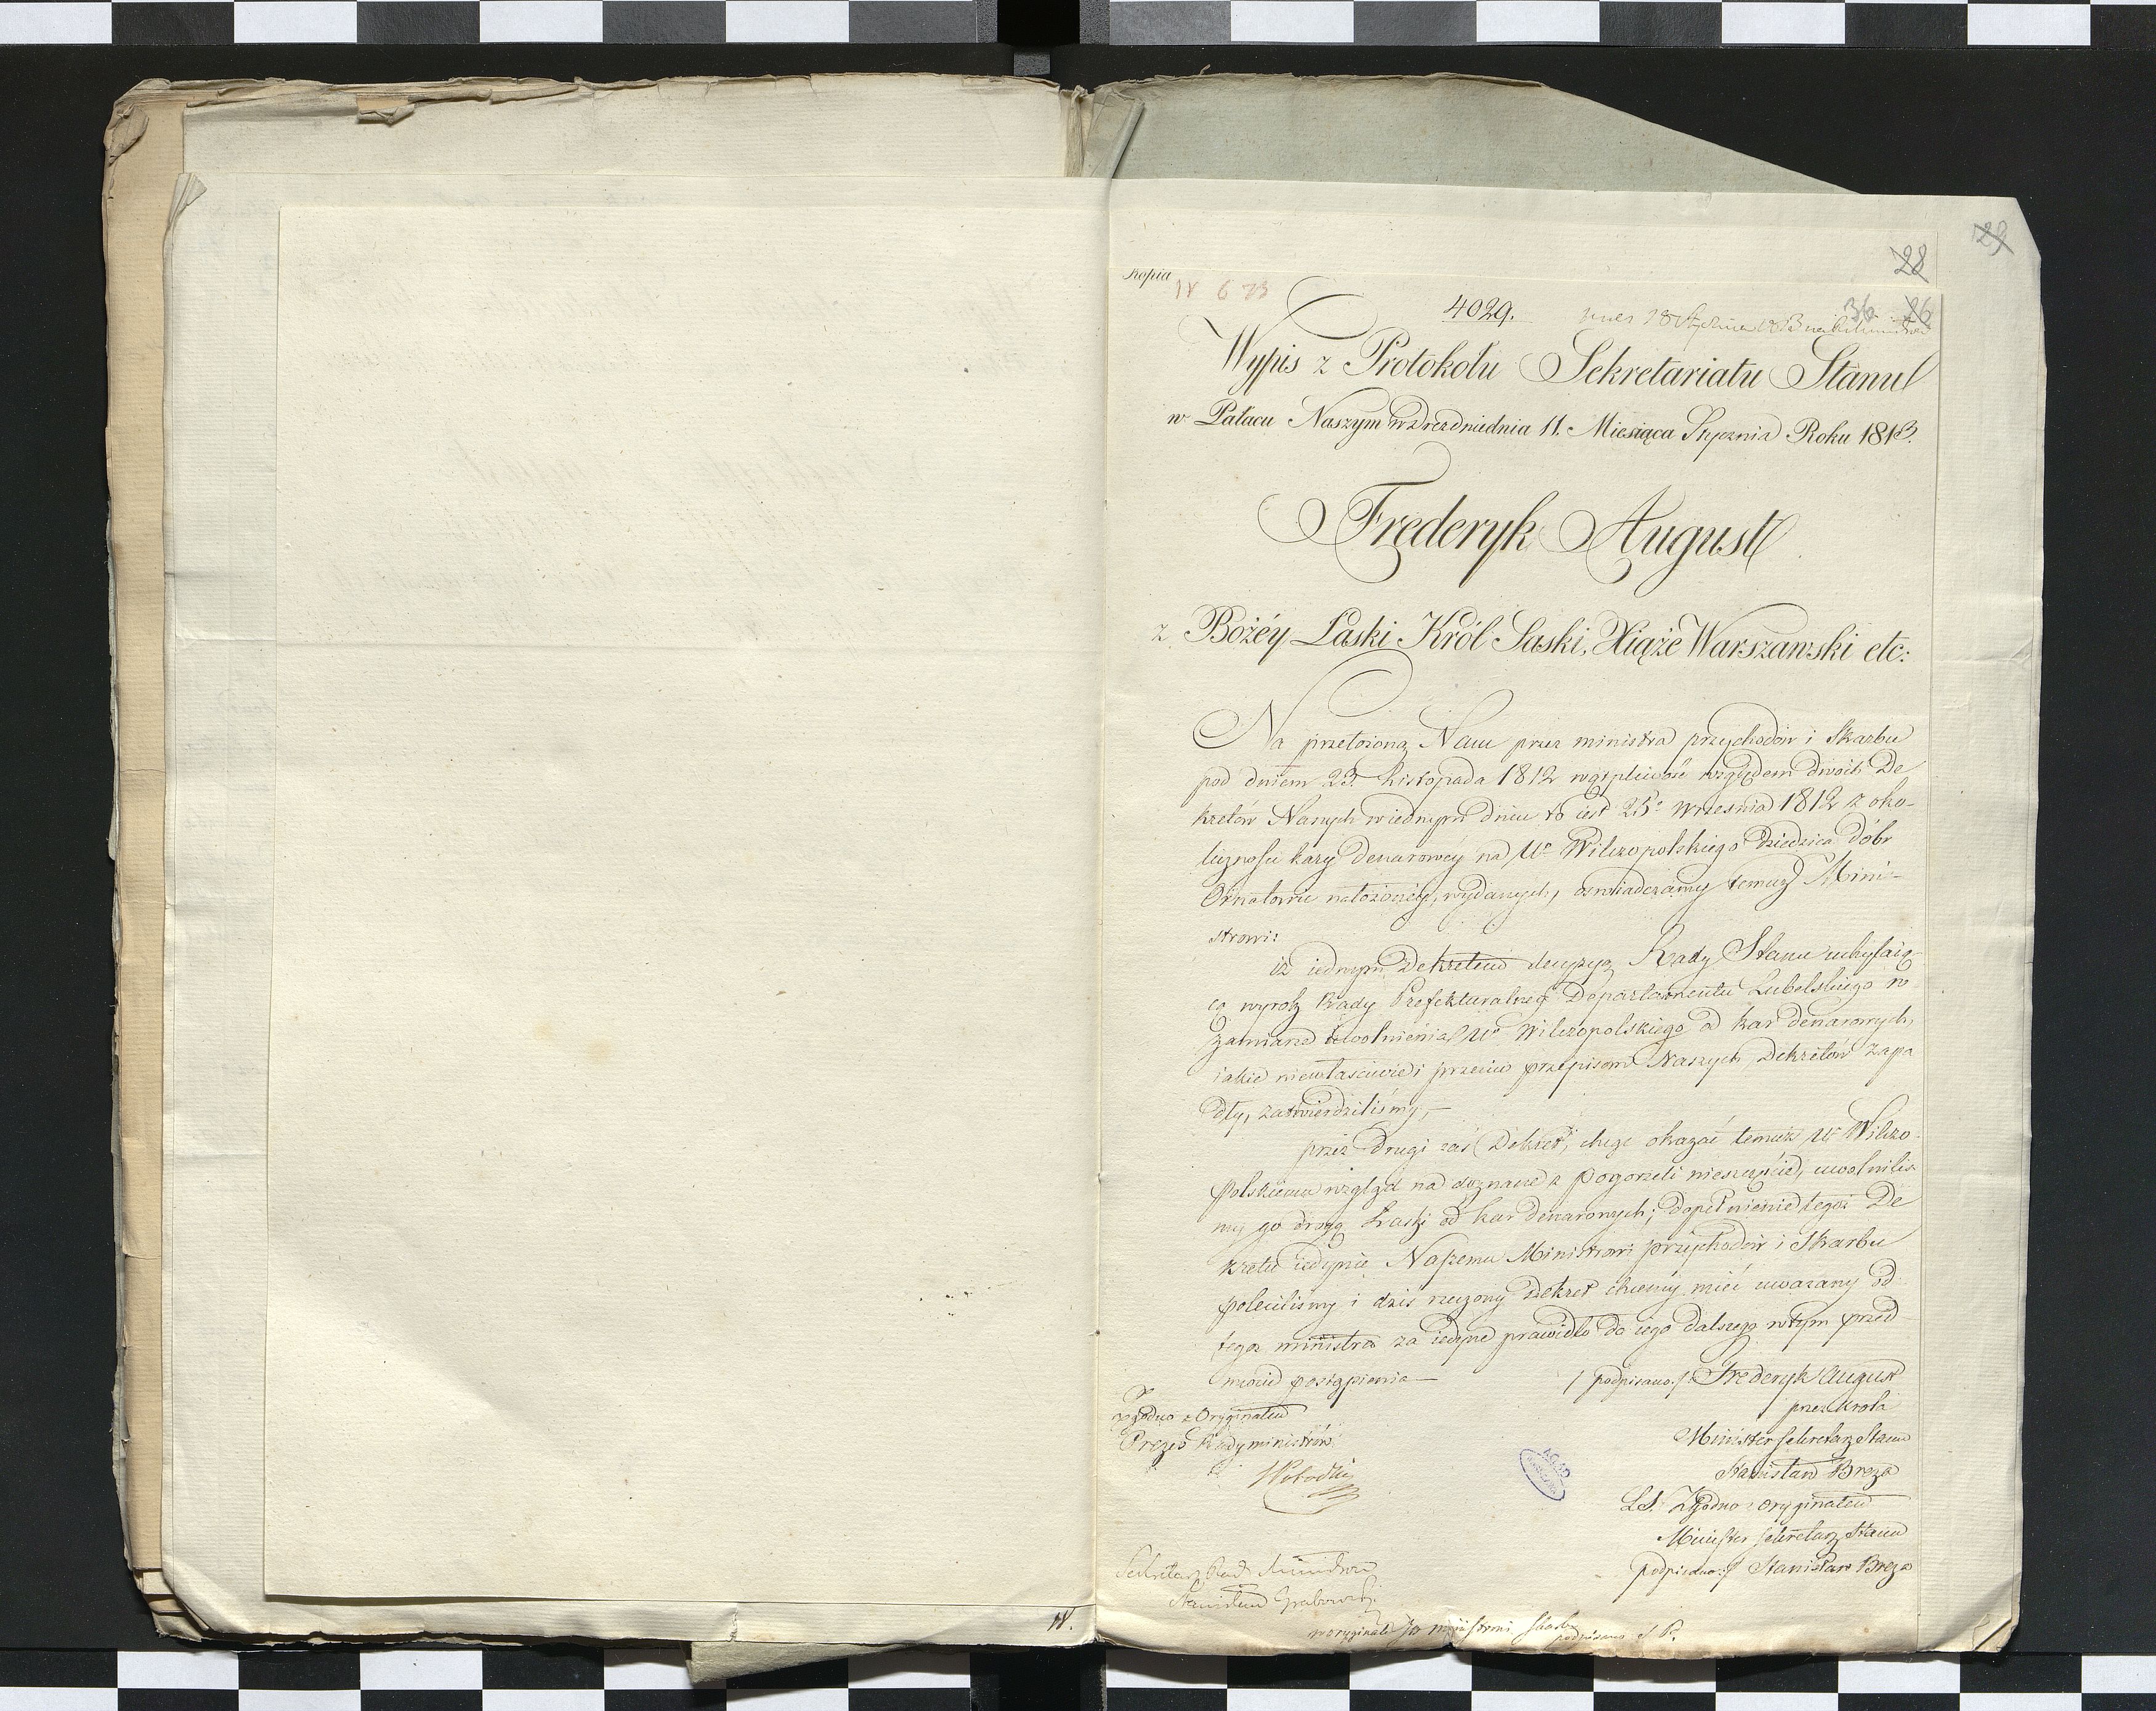 28
29
Kopia
4029.
36 26
Wypis z Protokołu Sekretariatu Stanu
w Pałacu Naszym w Dreźnie dnia 11. Miesiąca Stycznia Roku 1813.
Frederyk August
z Bożéy Łaski Król Saski, Xiąże Warszawski etc:
Na przełożoną Nam przez ministra przychodów i Skarbu
pod dniem 23. Listopada 1812 wątpliwość względem dwóch De
kretów Naszych w iednym dniu to iest 25º września 1812 z oko-
liczności kary denarowéy na Ur Wilczopolskiego Dziedzica dóbr
nałożonéy, wydanych, oswiadczamy temuż Mini-
strowi:
iż iednym Dekretem decyzyą Rady Stanu uchylaią-
cą wyrok Rady Prefekturalnéy Departamentu Lubelskiego w
zamiarze uwolnienia Ur Wilczopolskiego od kar denarowych,
iakie niewłaściwie i przeciw przepisom Naszych Dekretów zapa
dły, zatwierdziliśmy,—
przez drugi zaś Dekret, chcąc okazać temuż Ur Wilczo-
polskiemu wzgląd na doznane z pogorzeli nieszczęście, uwolniliś
my go drogą Łaski od kar denarowych; dopełnienie tegoż De
kretu iedynie Naszemu Ministrowi przychodów i Skarbu
poleciliśmy i dziś rzeczony Dekret chcemy mieć uwazany od
tegoż ministra za iedyne prawidło do iego dalszego w tym przed
miocie postąpienia—
/ podpisano / Frederyk August
przez Króla
Minister Sekretarz Stanu
Stanisław Breza
L.S. Zgodno z oryginałem
Minister Sekretarz Stanu
podpisano / Stanisław Breza
Zgodno z Oryginałem
Prezes Rady Ministrów
Sekretarz Rady Ministrów
Stanisław Grabowski
w oryginale Ministrowi Skarbu
podpisano
18.